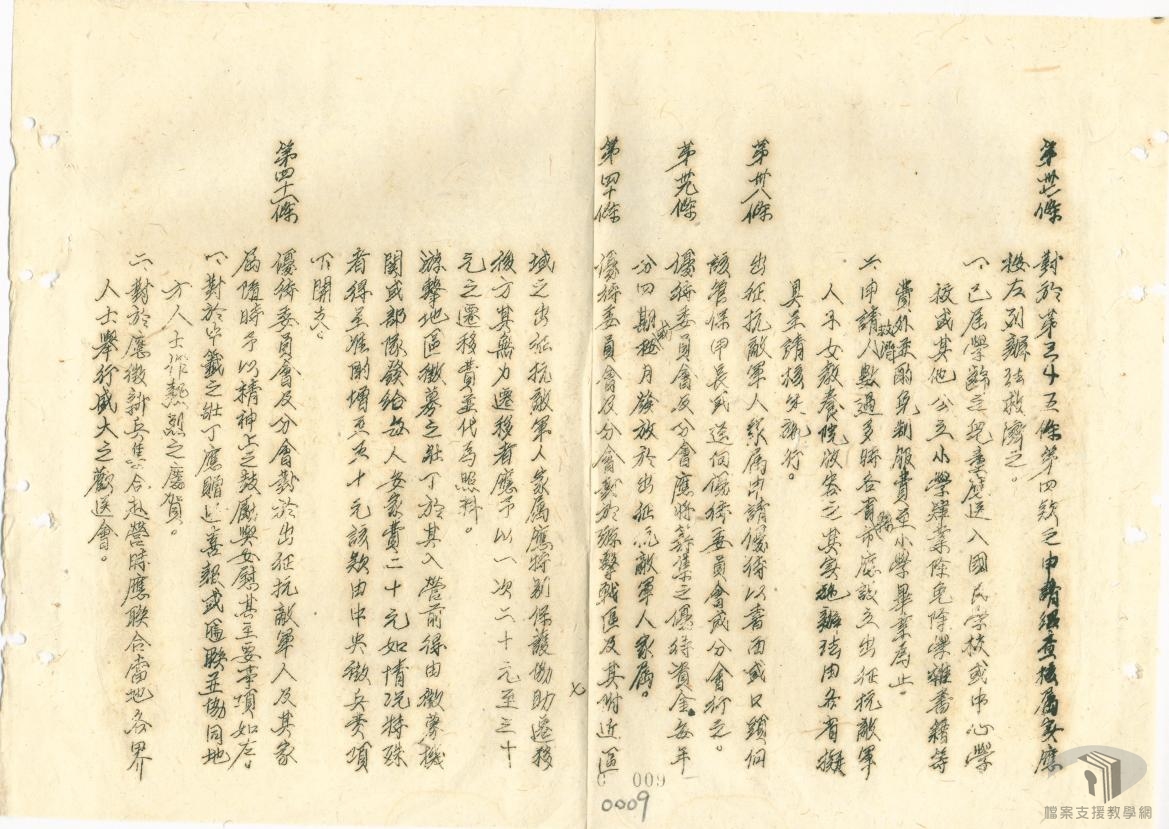 第卅七條
對於第三十五條第四欵之申請經查核屬實應
按左列辦法救濟之。
一、已屆學齡之兒童應送入國民學校或中心學
校或其他公立小學肄業除免除學雜書籍等
費外並酌免制服費至小學畢業為止。
二、申請救濟人數過多時各省市縣應設立出征抗敵軍
人子女教養院收容之其實施辦法由各省擬
具呈請核定施行。
第卅八條
出征抗敵軍人家屬申請優待以書面或口頭向
該管保甲長或逕向優待委員會或分會行之。
第卅九條
優待委員會及分會應將籌集之優待資金每年
分四期或按月發放於出征抗敵軍人家屬。
第四十條
優待委員會及分會對於游擊戰區及其附近區
域之出征抗敵軍人家屬應特別保護協助遷移
後方其無力遷移者應予以一次二十元至三十
元之遷移費並代為照料。
游擊地區徵募之壯丁於其入營前得由徵募機
関或部隊發給每人安家費二十元如情況特殊
者得呈准酌增至五十元該欵由中央徵兵費項
下開支。
第四十一條
優待委員會及分會對於出征抗敵軍人及其家
屬隨時予以精神上之鼓勵與安慰其主要事項如左。
一、對於中籤之壯丁應贈送喜報或匾聯並協同地
方人士作熱烈之慶賀。
二、對於應徵新兵集合赴營時應聯合當地各界
人士舉行盛大之歡送會。
七
009
0009
檔案支援教學網